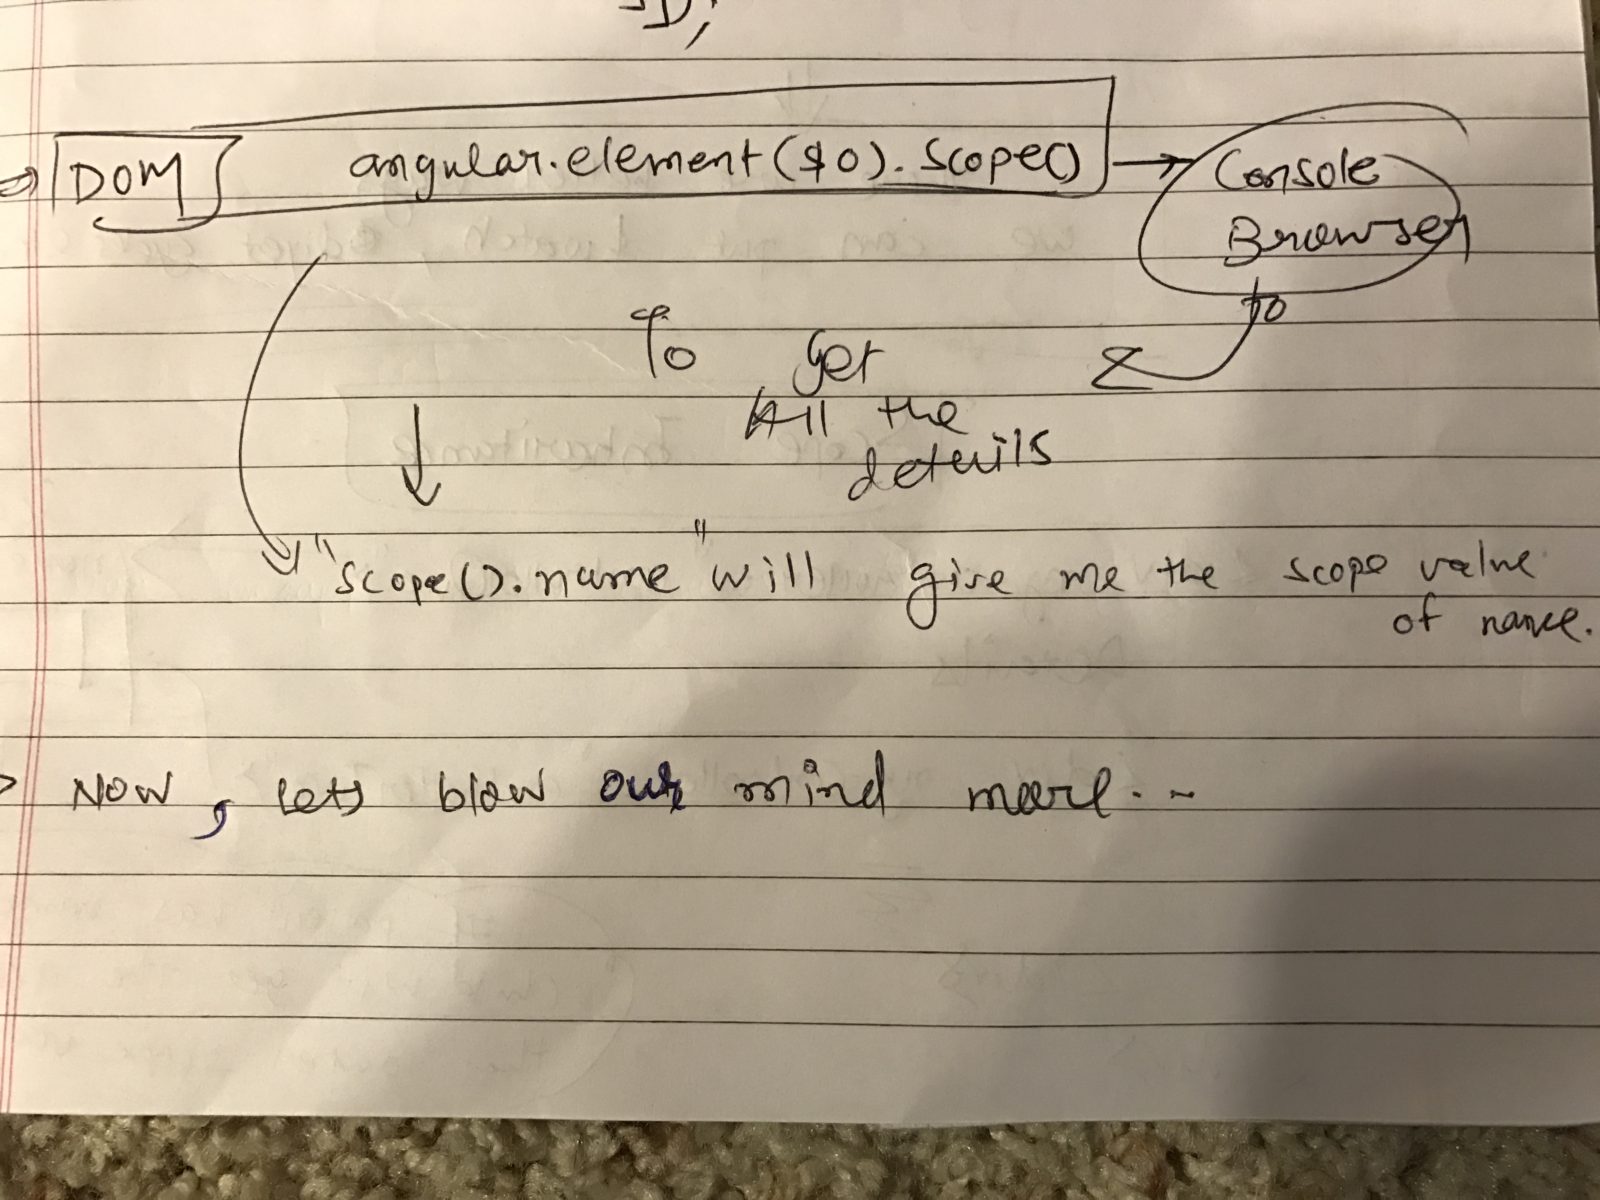 DOM angular.element($0).scope() → Console
Browser
to
To get
All the
details
"scope().name" will give me the scope value
of name.
Now, lets blow our mind more...